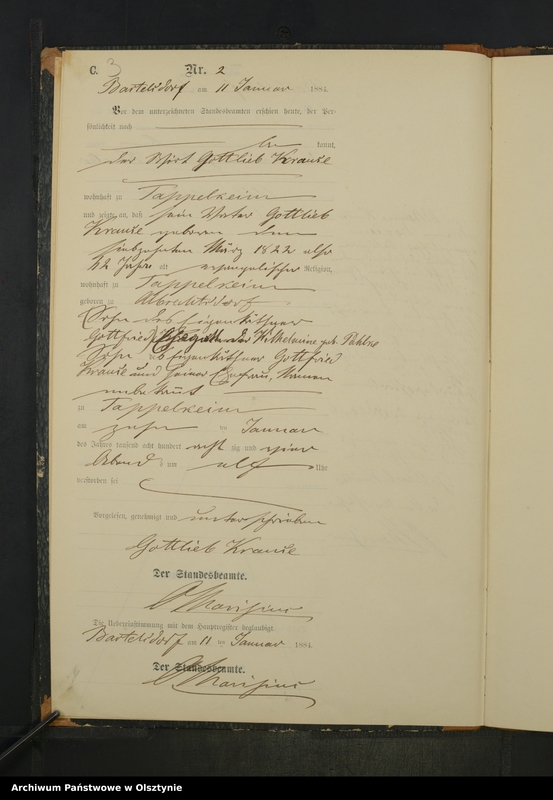 C. 3 Nr. 2
Bartelsdorf am 11 Januar 1884.
Vor dem unterzeichneten Standesbeamten erschien heute, der Per-
sönlichkeit nach
kannt,
der Wirt Gottlieb Krause
wohnhaft zu Tappelkeim
und zeigte an, daß sein Vater Gottlieb
Krause geboren den
siebzehnten März 1822 also
Jahre alt evangelischer Religion,
wohnhaft zu Tappelkeim
geboren zu Albrechtsdorf
Sohn des Eigenkäthner
Gottfried Wilhelmine geb.
Sohn des Eigenkäthner Gottfried
Krause und seiner Ehefrau, Namen
unbekannt
zu Tappelkeim
am zehn ten Januar
des Jahres tausend acht hundert acht zig und vier
Abend s um elf Uhr
verstorben sei
Vorgelesen, genehmigt und unterschrieben
Gottlieb Krause
Der Standesbeamte.
Die Uebereinstimmung mit dem Hauptregister beglaubigt.
Bartelsdorf am 11 ten Januar 1884.
Der Standesbeamte.
Archiwum Państwowe w Olsztynie